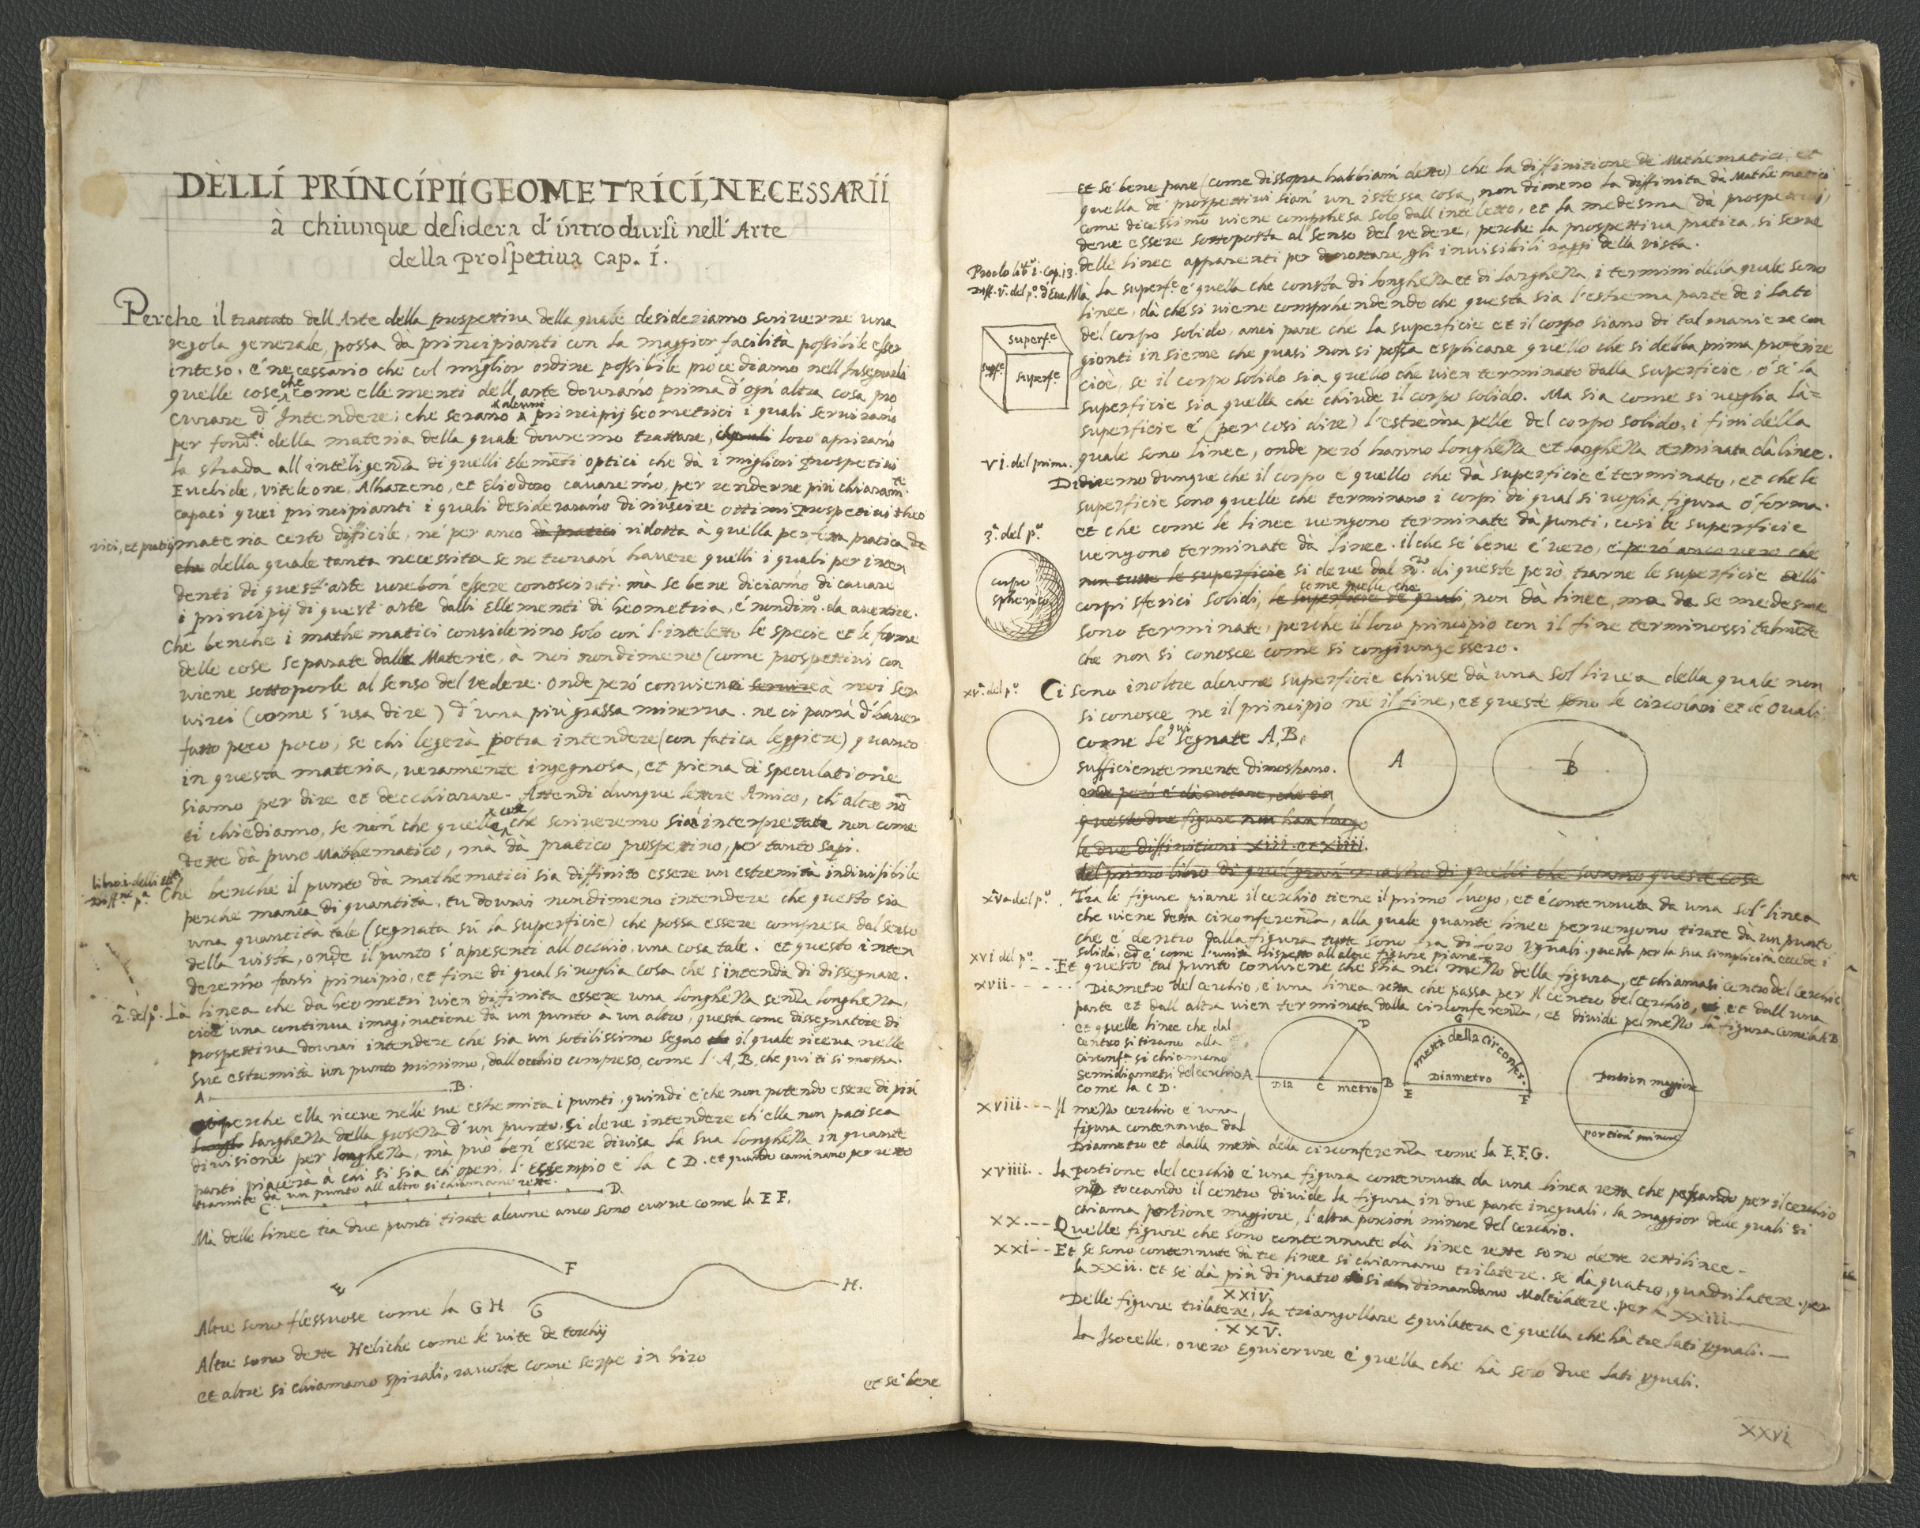 DELLI PRINCIPII GEOMETRICI, NECESSARII
à chiunque desidera d'introdursi nell'Arte
della prospetiva cap. I.
Perche il trattato dell Arte della prospettiva della quale desideriamo scriverne una
regola generale possa da principianti con la maggior facilità possibile esser
inteso, é necessario che col miglior ordine possibile procediamo nell
quelle cose che come ellementi dell arte dovrano prima d'ogn'altra cosa pro
curare d'Intendere; che serano alcuni principij Geometrici i quali servirano
per fond.ti della materia della quale dovremo trattare, loro aprirano
la strada all inteligenza di quelli Elementi optici che dà i migliori prospetivi
Euclide, Viteleone, Alhazeno, et Eliodoro cavaremo, per renderne più chiaram.te
capaci quei principianti i quali desiderarano di riuscire ottimi prospetivi theo
rici, et pratici materia certo difficile, né per anco di pratici ridotta à quella perfetta pratica de
della quale tanta necessita se ne trovan havere quelli i quali per inten
denti di quest'arte vorebon essere conosciuti. mà se bene diciamo di cavare
i principij di quest'arte dalli Ellementi di Geometria, é nondim.o da avertire.
Che benche i mathematici considerino solo con l'inteletto le specie et le forme
delle cose separate dalle Materie, à noi nondimeno (come prospettivi con
viene sottoporle al senso del vedere. onde però conviene servire à noi ser
virci (come s'usa dire) d'una più grassa minerva. ne ci parrà d'haver
fatto poco poco, se chi legerà potra intendere (con fatica leggiere) quanto
in questa materia, veramente ingegnosa, et piena di speculatione
siamo per dire et decchiarare. Attendi dunque lettore Amico, ch'altro nõ
ti chiediamo, se non che quelle cose che scriveremo sian interpretate non come
dette dà puro Mathematico, mà dà pratico prospettivo, per tanto sapi.
libro i. delli
Diff.ne p.a Che benche il punto dà mathematici sia diffinito essere un estremità indivisibile
perche manca di quantita, tu dovrai nondimeno intendere che questo sia
una quantita tale (segnata sù la superficie) che possa essere compresa dal senso
della vista, onde il punto s'apresenti all occhio, una cosa tale. et questo inten
deremo farsi principio, et fine di qual si voglia cosa che s'intenda di dissegnare.
2.a del p.o La linea che da Geometri vien diffinita essere una longhezza senza longhezza,
cioe una continua imaginatione da un punto a un altro, questa come dissegnatore di
prospettiva dovrai intendere che sia un sotilissimo segno il quale riceva nelle
sue estremità un punto minimo, dall occhio compreso, come l'A,B, che qui ti si mostra.
A B.
perche ella riceve nelle sue estremita i punti, quindi è che non potendo essere di più
largh larghezza della grosezza d'un punto, si deve intendere ch'ella non patisca
divisione per longhezza, mà può ben essere divisa la sua longhezza in quante
parti piacerà à cui si sia ch'operi, l'essempio é la C D. et quando caminano per retto
tramite da un punto all altro si chiamano rette.
C. D.
Mà delle linee tra due punti tirate alcune anco sono curve come la E F.
E F
G H.
Altre sono flessuose come la G H
Altre sono dette Heliche come le vite de torchij
et altre si chiamano spirali, ravolte come serpe in giro
et sé bene
et sé bene pare (come dissopra habbiam detto) che la diffinitione de Mathematici, et
quella de prospettivi sian un istessa cosa, non dimeno la diffinita dà Mathematici
come dicessimo viene compresa solo dall inteletto, et la medesma (dà prospettivi)
deve essere sottoposta al senso del vedere, perche la prospettiva pratica, si serve
delle linee apparenti per demostrare gli invisibili raggi della vista.
Proclo lib.o i. cap. 13.
Diff. v. del p.o d'Euc. Mà, la superf.e é quella che consta di longhezza et di larghezza, i termini della quale sono
linee, dà che si viene comprhendendo che questa sia l'estrema parte de i lati
del corpo solido, anci pare che la superficie et il corpo siano di tal maniere con
gionti insieme che quasi non si possa esplicare quello che si debba prima proferire
cioè, se il corpo solido sia quello che vien terminato dalla superficie, ò se la
superficie sia quella che chiude il corpo solido. Ma sia come si voglia là=
superficie é (per così dire) l'estrema pelle del corpo solido, i fini della
quale sono linee, onde peró hanno longhezza et larghezza terminata dà linee.
superf.e
superf.e
superf.e
VI. del primo. Diciaremo dunque che il corpo é quello che dà superficie é terminato, et che le
superficie sono quelle che terminano i corpi di qual si voglia figura ò forma.
3.a del p.o et che come le linee vengono terminate dà punti, così le superficie
vengono terminate dà linee. il che se bene é vero, é peró anco vero che
non tutte le superficie si deve dal n.ro di queste però trarne le superficie delli
come quelle che
corpi sferici solidi, le superficie de quali, non dà linee, ma da se medesme
sono terminate, perche il loro principio con il fine terminossi talmẽte
che non si conosce come si congiungessero.
corpo
spherico
xv.a del p.o Ci sono inoltre alcune superficie chiuse dà una sol linea della quale non
si conosce ne il principio ne il fine, et queste sono le circolari et le Ovali
come le qui segnate A,B,
sufficientemente dimostrano.
onde peró é da notare, che in
queste due figure non han luogo
le due diffinitioni XIII. et XIIII.
del primo libro di quel gran maestro di quelli che sanno queste cose
A
B
xv.a del p.o Tra le figure piane il cerchio tiene il primo luogo, et é contennuta da una sol' linea
che viene detta circonferenza, alla quale quante linee pervengono tirate dà un punto
che é dentro dalla figura tutte sono fra di loro uguali. questa per la sua simplicità eccede i
solidi, ed é come l'unità rispetto all altre figure piane.
XVI del p.o Et questo tal punto conviene che stia nel mezzo della figura, et chiamasi centro del cerchio
XVII Diametro del cerchio, é una linea retta che passa per il centro del cerchio, et dall una
parte et dall altra vien terminata dalla circonferenza, et divide pel mezzo la figura come la A B
et quelle linee che dal
centro si tirano alla
circonf.a si chiamano
semidiametri del cerchio
come la C D.
D
A Dia C metro B
G
meza della circonfer.
Diametro
E F
Portion maggiore
portion minore
XVIII Il mezzo cerchio é una
figura contennuta dal
Diametro et dalla metà della circonferenza come la E.F.G.
XVIIII La portione del cerchio é una figura contennuta da una linea retta che passando per il cerchio
nõ toccando il centro divide la figura in due parte ineguali, la maggior delle quali si
chiama portione maggiore, l'altra portion minore del cerchio.
XX Quelle figure che sono contennute dà linee rette sono dette rettilinee.
XXI Et se sono contennute dà tre linee si chiamano trilatere. se dà quatro, quadrilatere. per
la XXII. et se dà più di quatro si dimandano Moltilatere. per la XXIII
XXIV.
Delle figure trilatere, la triangollare Equilatera é quella che hà tre lati uguali.
XXV.
La Isocelle, overo Equicrure é quella che hà solo due lati uguali.
XXVI